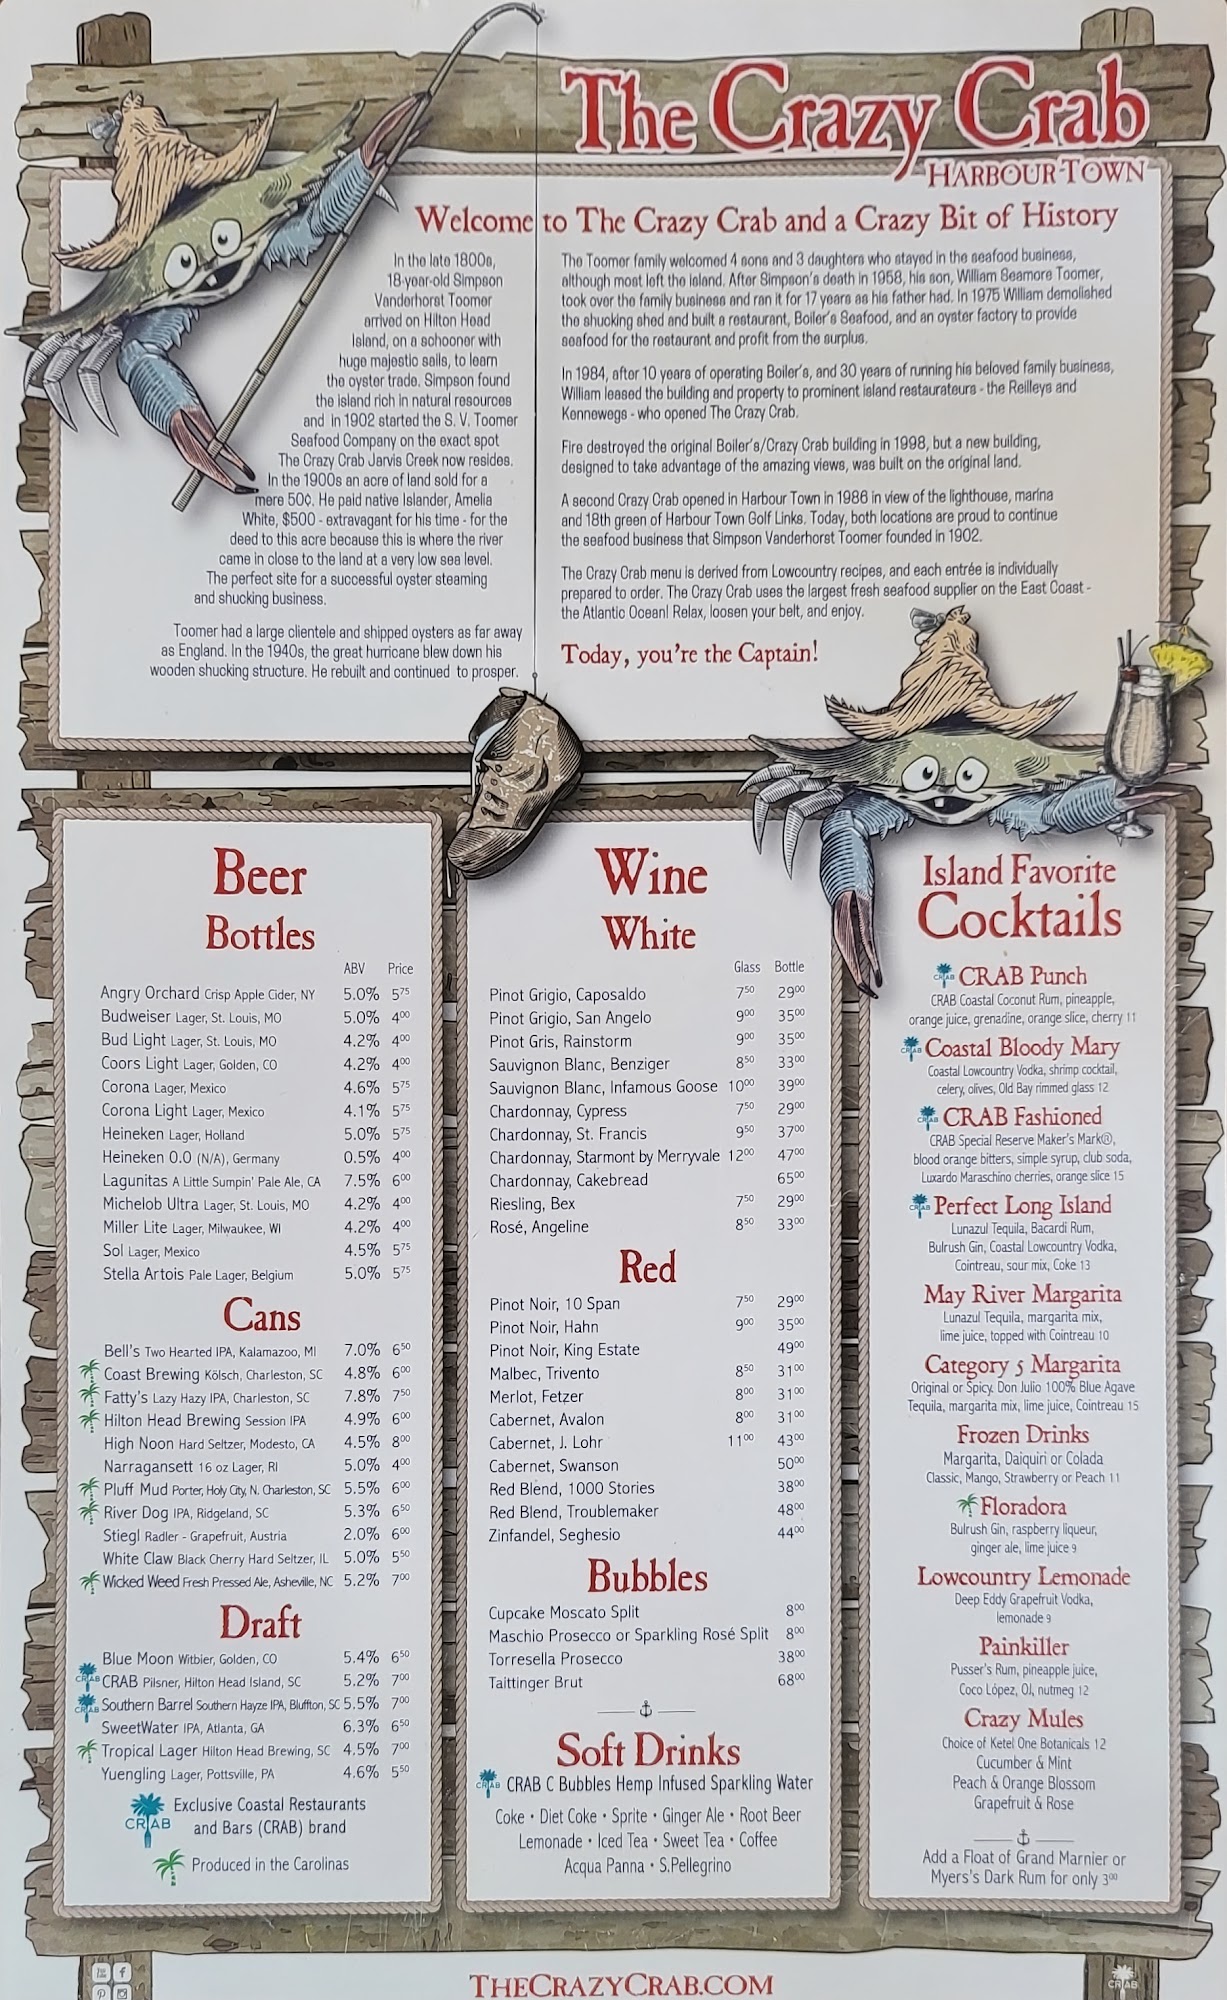 The Crazy Crab
Harbour Town
Welcome to The Crazy Crab and a Crazy Bit of History
In the late 1800s,
18-year-old Simpson
Vanderhorst Toomer
arrived on Hilton Head
Island, on a schooner with
huge majestic sails, to learn
the oyster trade. Simpson found
the island rich in natural resources
and in 1902 started the S. V. Toomer
Seafood Company on the exact spot
The Crazy Crab Jarvis Creek now resides.
In the 1900s an acre of land sold for a
mere 50¢. He paid native Islander, Amelia
White, $500 - extravagant for his time - for the
deed to this acre because this is where the river
came in close to the land at a very low sea level.
The perfect site for a successful oyster steaming
and shucking business.
Toomer had a large clientele and shipped oysters as far away
as England. In the 1940s, the great hurricane blew down his
wooden shucking structure. He rebuilt and continued to prosper.
The Toomer family welcomed 4 sons and 3 daughters who stayed in the seafood business,
although most left the island. After Simpson's death in 1958, his son, William Seamore Toomer,
took over the family business and ran it for 17 years as his father had. In 1975 William demolished
the shucking shed and built a restaurant, Boiler's Seafood, and an oyster factory to provide
seafood for the restaurant and profit from the surplus.
In 1984, after 10 years of operating Boiler's, and 30 years of running his beloved family business,
William leased the building and property to prominent island restaurateurs - the Reilleys and
Kennewegs - who opened The Crazy Crab.
Fire destroyed the original Boiler's/Crazy Crab building in 1998, but a new building,
designed to take advantage of the amazing views, was built on the original land.
A second Crazy Crab opened in Harbour Town in 1986 in view of the lighthouse, marina
and 18th green of Harbour Town Golf Links. Today, both locations are proud to continue
the seafood business that Simpson Vanderhorst Toomer founded in 1902.
The Crazy Crab menu is derived from Lowcountry recipes, and each entrée is individually
prepared to order. The Crazy Crab uses the largest fresh seafood supplier on the East Coast -
the Atlantic Ocean! Relax, loosen your belt, and enjoy.
Today, you're the Captain!
Beer
Bottles
ABV Price
Angry Orchard Crisp Apple Cider, NY 5.0% 575
Budweiser Lager, St. Louis, MO 5.0% 400
Bud Light Lager, St. Louis, MO 4.2% 400
Coors Light Lager, Golden, CO 4.2% 400
Corona Lager, Mexico 4.6% 575
Corona Light Lager, Mexico 4.1% 575
Heineken Lager, Holland 5.0% 575
Heineken 0.0 (N/A), Germany 0.5% 400
Lagunitas A Little Sumpin' Pale Ale, CA 7.5% 600
Michelob Ultra Lager, St. Louis, MO 4.2% 400
Miller Lite Lager, Milwaukee, WI 4.2% 400
Sol Lager, Mexico 4.5% 575
Stella Artois Pale Lager, Belgium 5.0% 575
Cans
Bell's Two Hearted IPA, Kalamazoo, MI 7.0% 650
Coast Brewing Kölsch, Charleston, SC 4.8% 600
Fatty's Lazy Hazy IPA, Charleston, SC 7.8% 750
Hilton Head Brewing Session IPA 4.9% 600
High Noon Hard Seltzer, Modesto, CA 4.5% 800
Narragansett 16 oz Lager, RI 5.0% 400
Pluff Mud Porter, Holy City, N. Charleston, SC 5.5% 600
River Dog IPA, Ridgeland, SC 5.3% 650
Stiegl Radler - Grapefruit, Austria 2.0% 600
White Claw Black Cherry Hard Seltzer, IL 5.0% 550
Wicked Weed Fresh Pressed Ale, Asheville, NC 5.2% 700
Draft
Blue Moon Witbier, Golden, CO 5.4% 650
CRAB CRAB Pilsner, Hilton Head Island, SC 5.2% 700
CRAB Southern Barrel Southern Hayze IPA, Bluffton, SC 5.5% 700
SweetWater IPA, Atlanta, GA 6.3% 650
Tropical Lager Hilton Head Brewing, SC 4.5% 700
Yuengling Lager, Pottsville, PA 4.6% 550
CRAB Exclusive Coastal Restaurants
and Bars (CRAB) brand
Produced in the Carolinas
Wine
White
Glass Bottle
Pinot Grigio, Caposaldo 750 2900
Pinot Grigio, San Angelo 900 3500
Pinot Gris, Rainstorm 900 3500
Sauvignon Blanc, Benziger 850 3300
Sauvignon Blanc, Infamous Goose 1000 3900
Chardonnay, Cypress 750 2900
Chardonnay, St. Francis 950 3700
Chardonnay, Starmont by Merryvale 1200 4700
Chardonnay, Cakebread 6500
Riesling, Bex 750 2900
Rosé, Angeline 850 3300
Red
Pinot Noir, 10 Span 750 2900
Pinot Noir, Hahn 900 3500
Pinot Noir, King Estate 4900
Malbec, Trivento 850 3100
Merlot, Fetzer 800 3100
Cabernet, Avalon 800 3100
Cabernet, J. Lohr 1100 4300
Cabernet, Swanson 5000
Red Blend, 1000 Stories 3800
Red Blend, Troublemaker 4800
Zinfandel, Seghesio 4400
Bubbles
Cupcake Moscato Split 800
Maschio Prosecco or Sparkling Rosé Split 800
Torresella Prosecco 3800
Taittinger Brut 6800
Soft Drinks
CRAB CRAB C Bubbles Hemp Infused Sparkling Water
Coke • Diet Coke • Sprite • Ginger Ale • Root Beer
Lemonade • Iced Tea • Sweet Tea • Coffee
Acqua Panna • S.Pellegrino
Island Favorite
Cocktails
CRAB CRAB Punch
CRAB Coastal Coconut Rum, pineapple,
orange juice, grenadine, orange slice, cherry 11
CRAB Coastal Bloody Mary
Coastal Lowcountry Vodka, shrimp cocktail,
celery, olives, Old Bay rimmed glass 12
CRAB CRAB Fashioned
CRAB Special Reserve Maker's Mark®,
blood orange bitters, simple syrup, club soda,
Luxardo Maraschino cherries, orange slice 15
CRAB Perfect Long Island
Lunazul Tequila, Bacardi Rum,
Bulrush Gin, Coastal Lowcountry Vodka,
Cointreau, sour mix, Coke 13
May River Margarita
Lunazul Tequila, margarita mix,
lime juice, topped with Cointreau 10
Category 5 Margarita
Original or Spicy. Don Julio 100% Blue Agave
Tequila, margarita mix, lime juice, Cointreau 15
Frozen Drinks
Margarita, Daiquiri or Colada
Classic, Mango, Strawberry or Peach 11
Floradora
Bulrush Gin, raspberry liqueur,
ginger ale, lime juice 9
Lowcountry Lemonade
Deep Eddy Grapefruit Vodka,
lemonade 9
Painkiller
Pusser's Rum, pineapple juice,
Coco López, OJ, nutmeg 12
Crazy Mules
Choice of Ketel One Botanicals 12
Cucumber & Mint
Peach & Orange Blossom
Grapefruit & Rose
Add a Float of Grand Marnier or
Myers's Dark Rum for only 300
TheCrazyCrab.com
CRAB